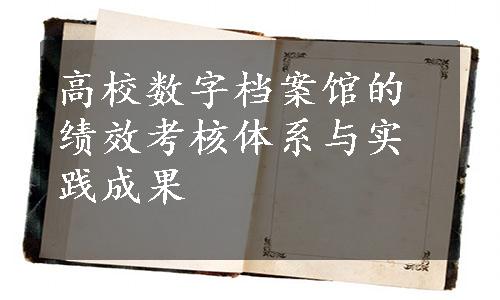 高校数字档案馆的
绩效考核体系与实
践成果